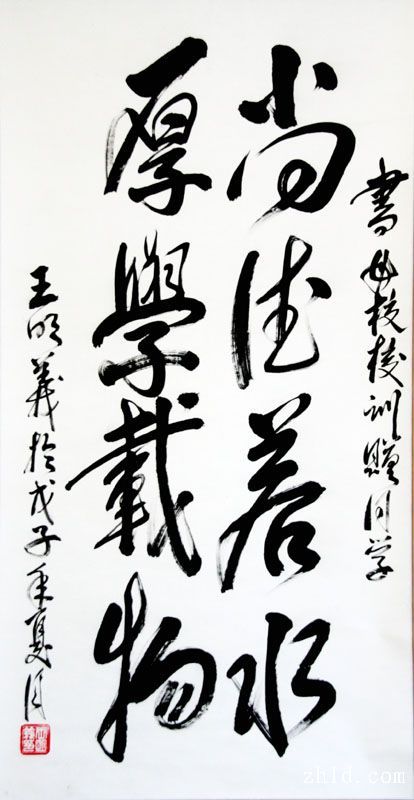 書母校校训赠同学
尚德若水
厚學載物
王明義於戊子年夏月
zhld.com